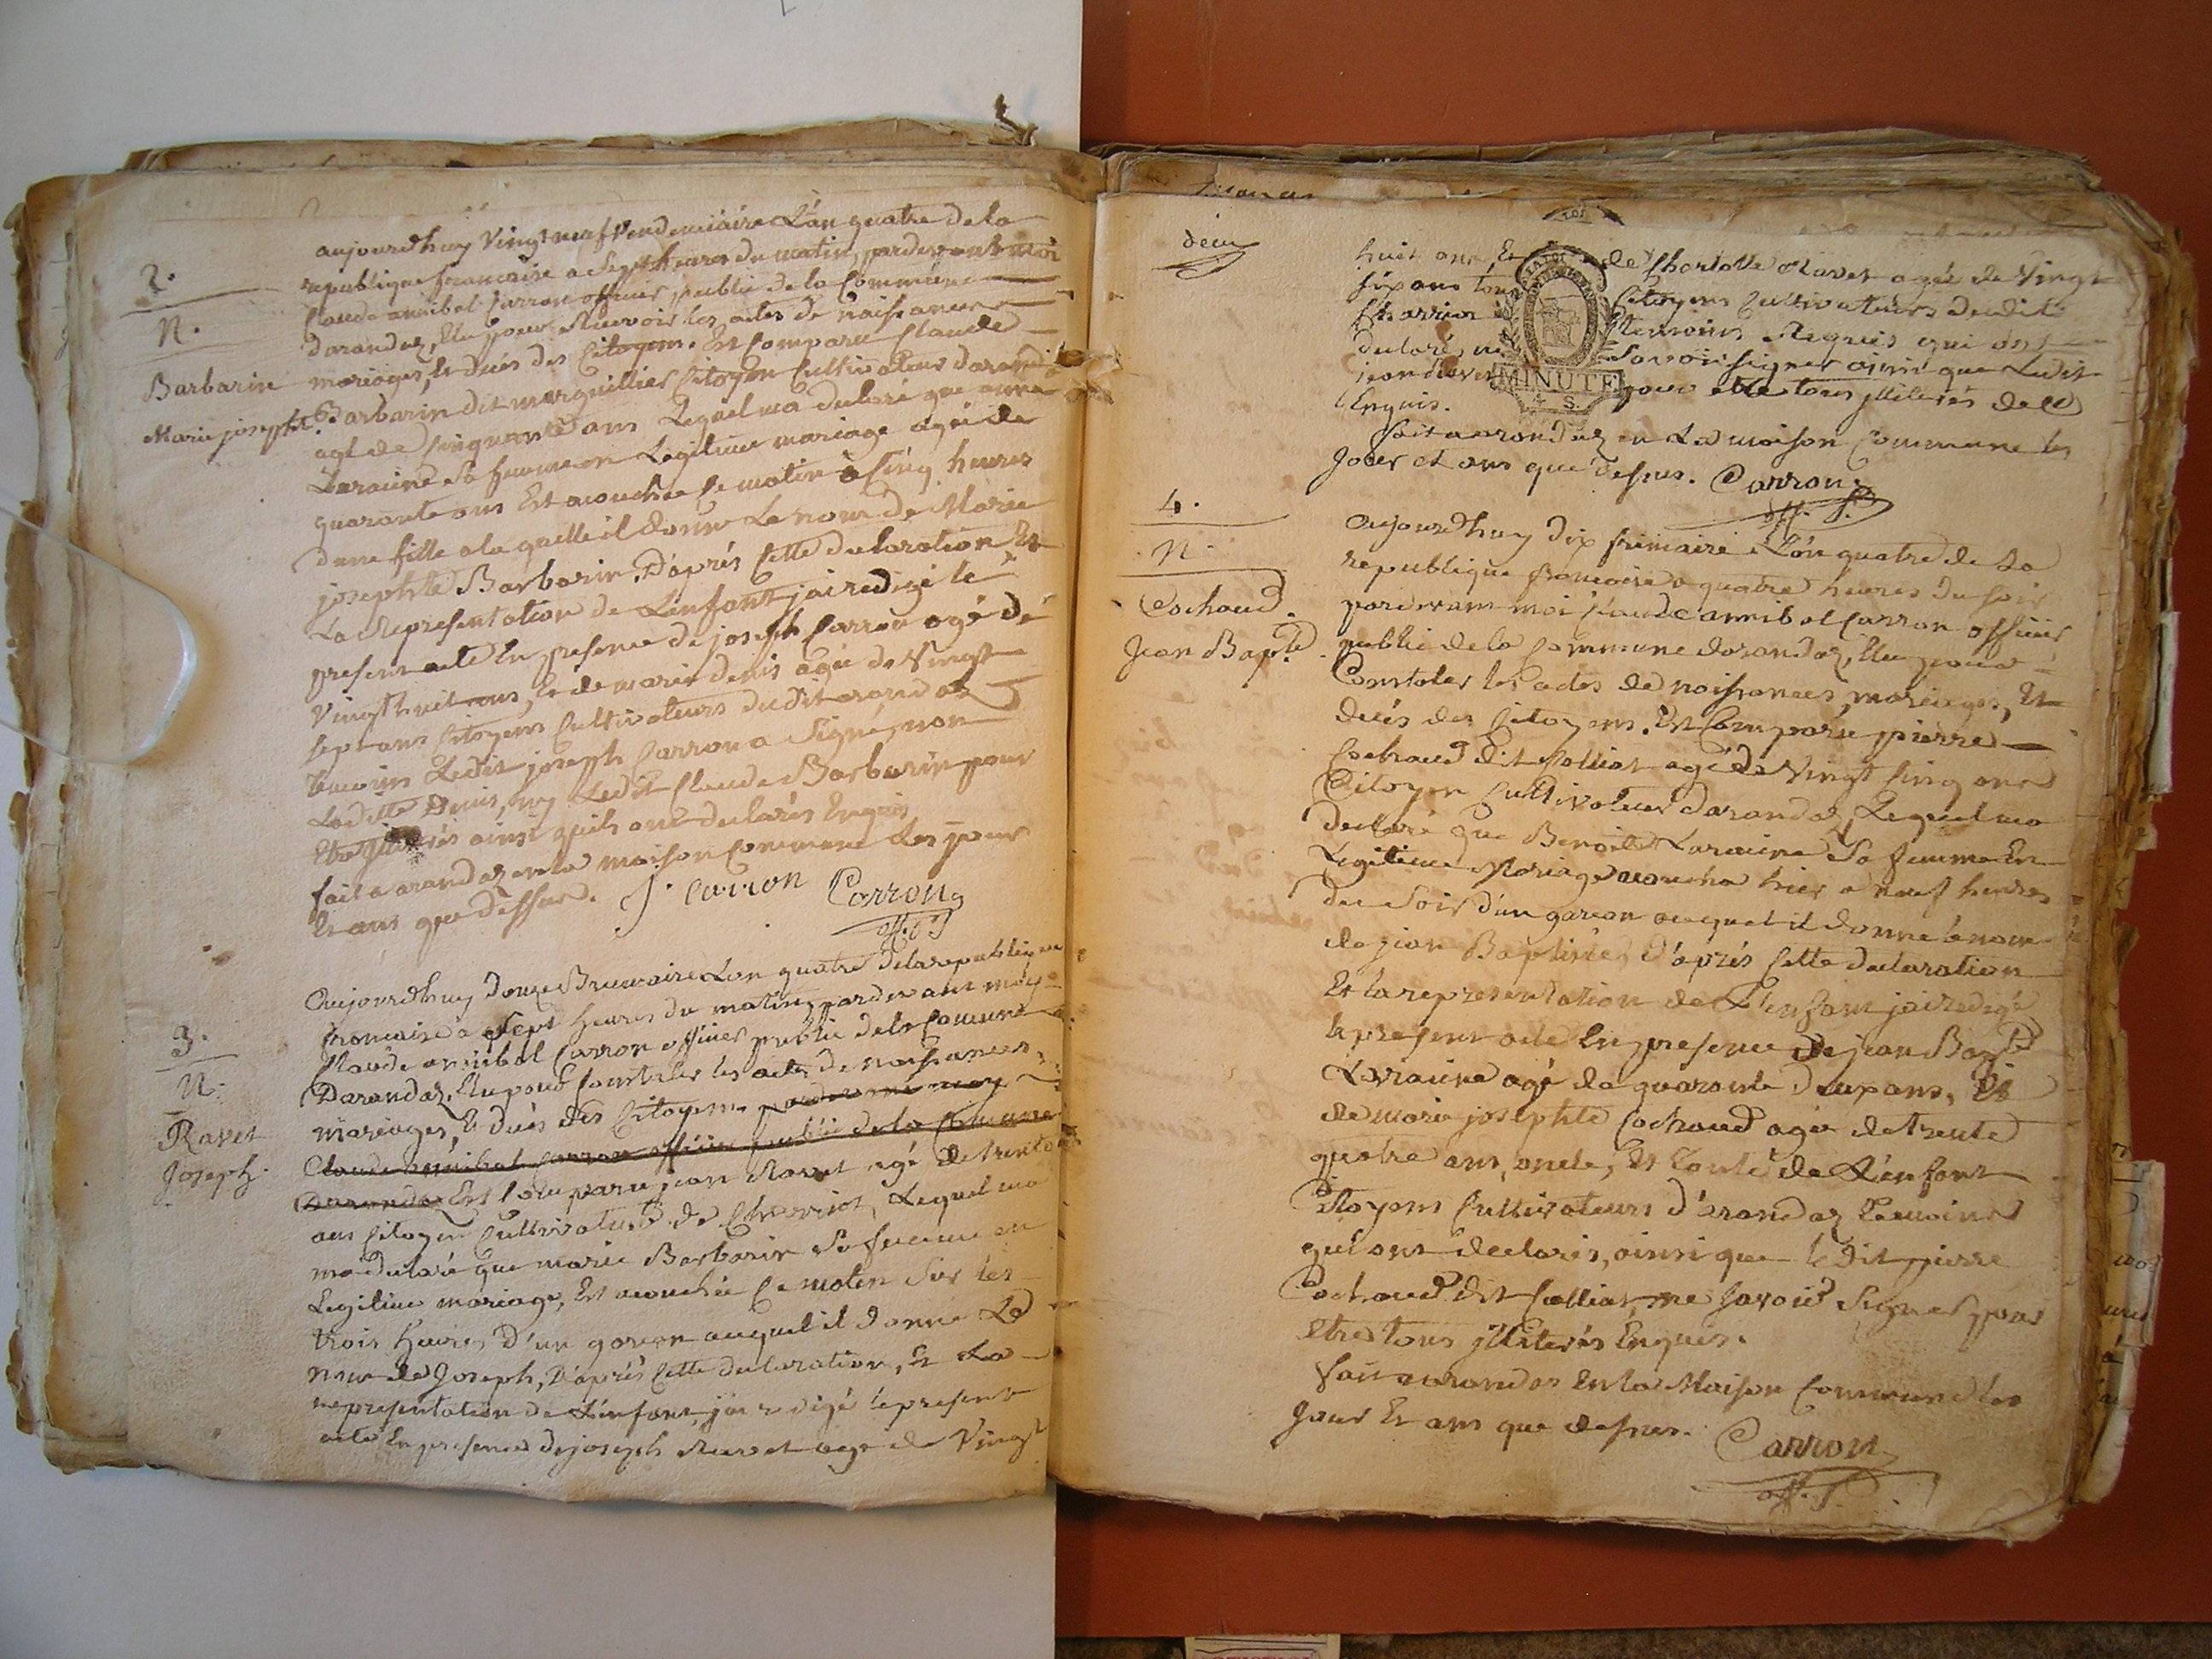 2.
N.
Barbarin
Marie josephte
aujourdhuy Vingt neuf Vendemiaire L'an quatre de la
republique francaise a Sept heures du matin, pardevant moi
Claude annibal Carron officier public de la Commune
darandaz, Elu pour Recevoir les actes de naissances
mariages, Et dués des Citoyens. Est Comparu Claude
Barbarin dit marguillier Citoyen Cultivateur darandaz
agé de Cinquante ans Lequel ma declaré que anne
Laraine Sa femme en Legitime mariage agée de
quarante ans Est acouchée Ce matin a Cinq heures
dune fille a la quelle il donne Le nom de Marie
josephte Barbarin. D'aprés Cette declaration Et
La Representation de L'enfant jai redigé le
present acte En presence de joseph Carron agé de
Vingt huit ans, Et de marie denis agée de Vingt
sept ans Citoyens Cultivateurs dudit arandaz
temoins Ledit joseph Carron a Signé, non
Laditte Denis, ny Ledit Claude Barbarin pour
Etre jlliterés ainsi quils ont declarés Enquis
fait a arandaz en la maison Commune Les jour
Et ans que Dessus. J. Carron Carron
off. P.
3.
N.
Ravet
Joseph.
Aujourdhuy Douze Brumaire Lan quatre dela republique
francaise a Sept heures du matin, pardevant moy
Claude annibal Carron officier public dela Comune
Darandaz. Elu pour Constater les actes de naissances,
mariages, Et dués des Citoyens. pardevant moy
Claude annibal Carron officier public de la Commune
Darandaz Est Comparu jean Ravet agé de trente
ans Citoyen Cultivateur de Charriot, Lequel ma
ma declaré que marie Barbarin Sa femme en
Legitime mariage, Est acouchée Ce matin Sur les
trois heures D'un garcon auquel il donne Le
nom de Joseph, D'aprés Cette declaration, Et La
representation de L'enfant, jai redigé le present
acte En presence de joseph Ravet age de Vingt
deux
huit ans Et de Charlotte Ravet agée de Vingt
six ans tous Citoyens Cultivateurs dudit
Charriot temoins Requis qui ont
declaré ne Savoir Signer ainsi que Ledit
jean Ravet pour etre tous jlliterés de ce
Enquis.
MINUTE
4 S.
fait a arandaz en La maison Commune les
Jour et ans que dessus. Carron
off. P.
4.
N.
Cochaud.
Jean Bapte.
Aujourdhuy dix frimaire L'an quatre de La
republique francaise a quatre heures du soir
pardevant moi Claude annibal Carron officier
public de la Commune darandaz, Elu pour
Constater les actes de naissances, mariages, Et
dués des Citoyens. Est Comparu pierre
Cochaud dit Colliat agé de Vingt Cinq ans
Citoyen Cultivateur darandaz, Lequel ma
declaré que Benoite Laraine Sa femme En
Legitime Mariage acoucha hier a neuf heures
du Soir d'un garcon auquel il donne le nom
de jean Baptiste, d'aprés Cette declaration
Et la representation de L'enfant jai redigé
le present acte En presence de jean Bapte
Laraine agé de quarante deux ans, Et
de marie josephte Cochaud agée de trente
quatre ans, oncle, Et tante de L'enfant
Citoyens Cultivateurs d'arandaz temoins
qui ont declarés, ainsi que le dit pierre
Cochaud dit Colliat ne Savoir Signer pour
etre tous jlliterés Enquis.
fait a arandas En la Maison Commune les
Jour Et ans que dessus. Carron
off. P.